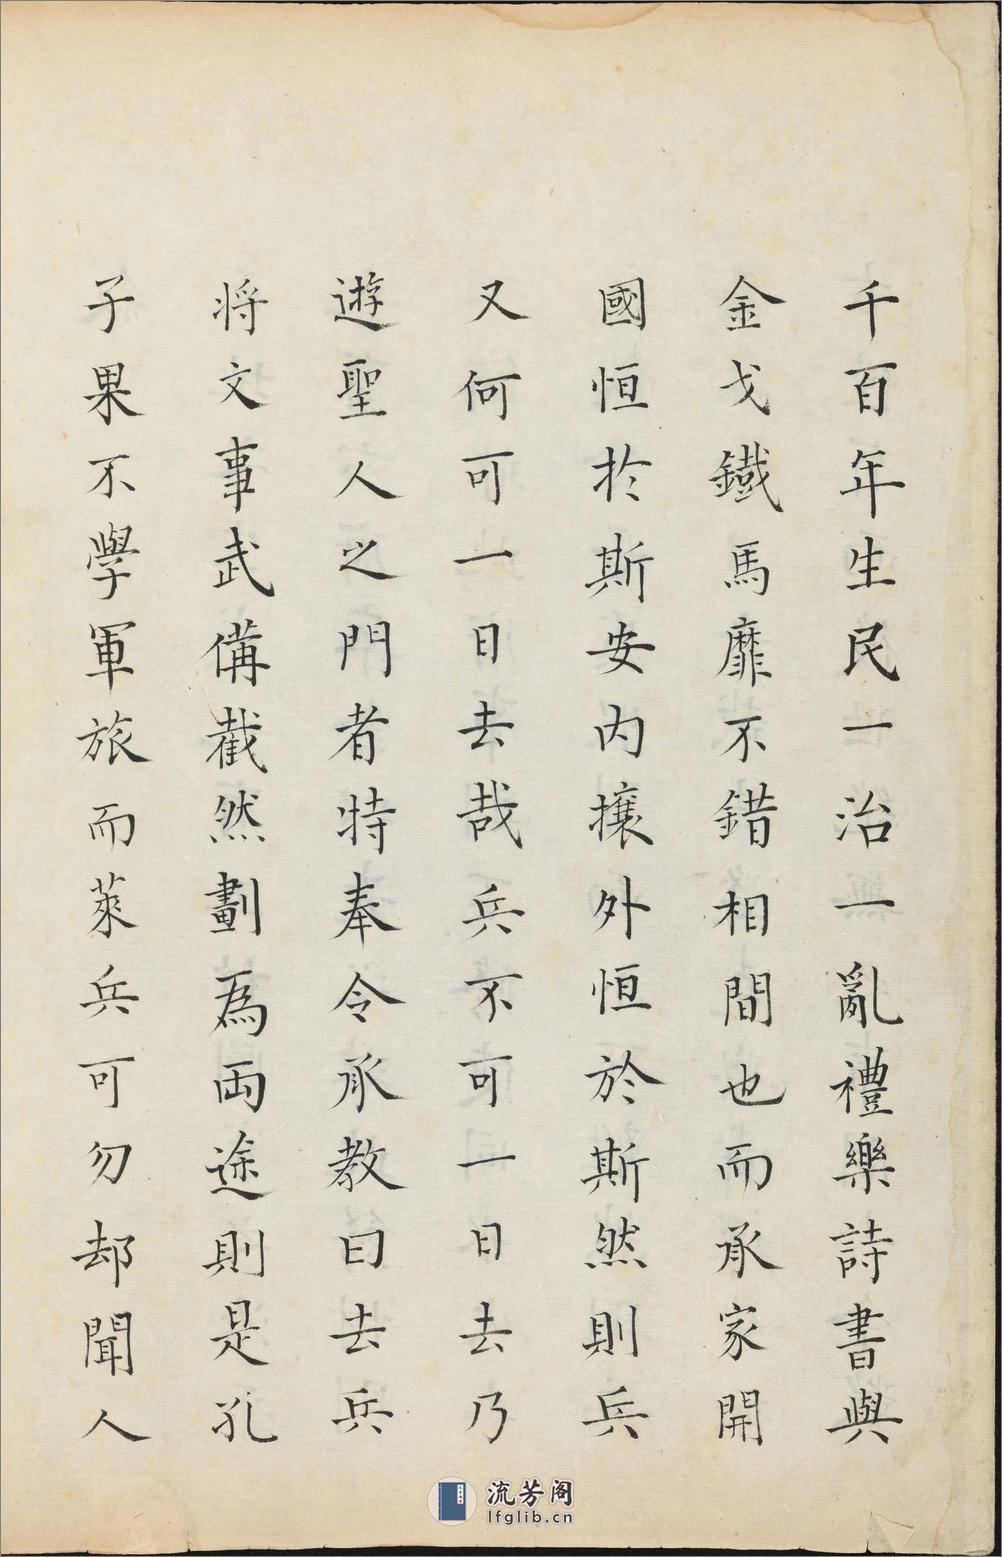 千百年生民一治一亂禮樂詩書與
金戈鐵馬靡不錯相間也而承家開
國恒扵斯安内攘外恒於斯然則兵
又何可一日去哉兵不可一日去乃
遊聖人之門者特奉令承教曰去兵
将文事武備截然劃為両途則是孔
子果不學軍旅而萊兵可勿却聞人
流芳阁
lfglib.cn